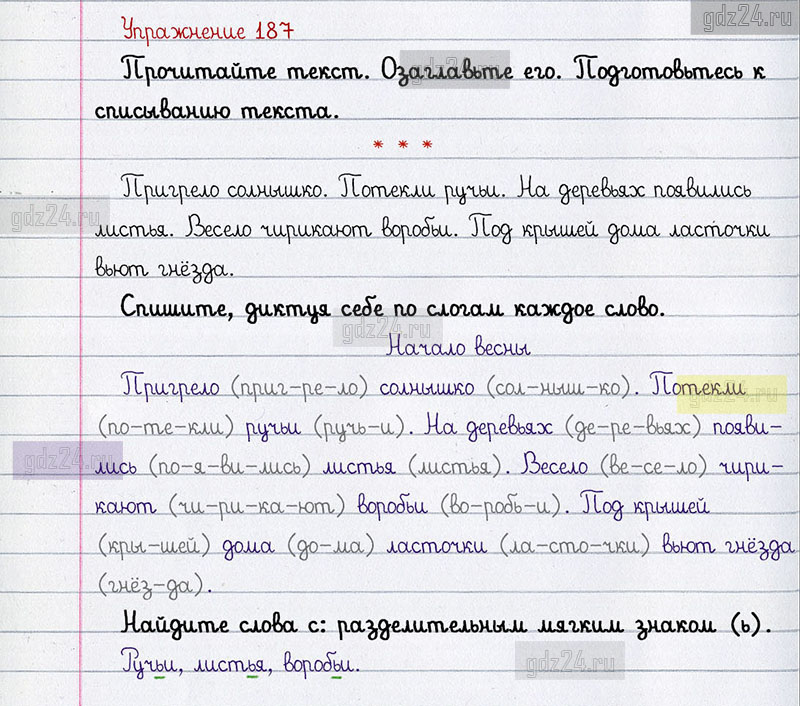 gdz24.ru
Упражнение 187
Прочитайте текст. Озаглавьте его. Подготовьтесь к
списыванию текста.
* * *
Пригрело солнышко. Потекли ручьи. На деревьях появились
листья. Весело чирикают воробьи. Под крышей дома ласточки
вьют гнёзда.
Спишите, диктуя себе по слогам каждое слово.
Начало весны
Пригрело (приг-ре-ло) солнышко (сол-ныш-ко). Потекли
(по-те-кли) ручьи (ручь-и). На деревьях (де-ре-вьях) появи-
лись (по-я-ви-лись) листья (листья). Весело (ве-се-ло) чири-
кают (чи-ри-ка-ют) воробьи (во-робь-и). Под крышей
(кры-шей) дома (до-ма) ласточки (ла-сто-чки) вьют гнёзда
(гнёз-да).
Найдите слова с: разделительным мягким знаком (ь).
Ручьи, листья, воробьи.
gdz24.ru